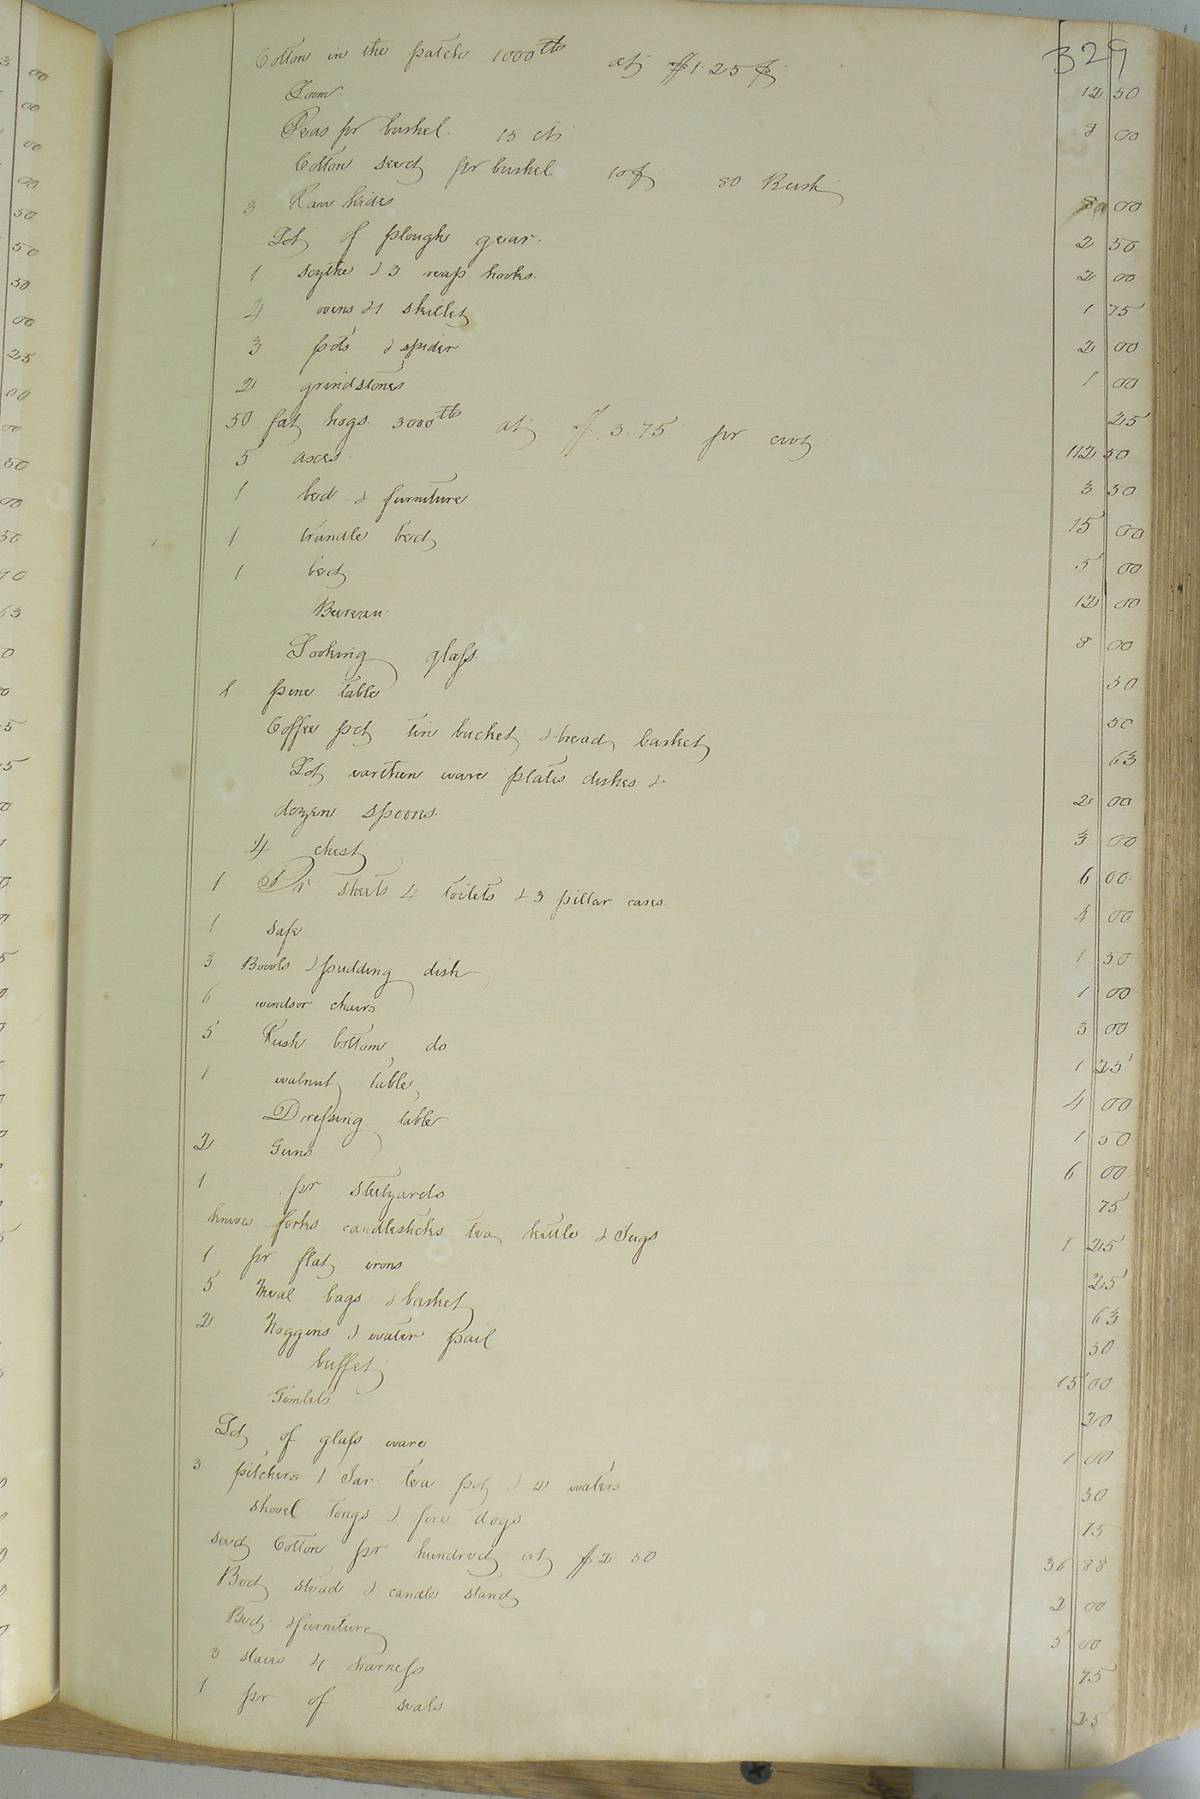 329
Cotton in the patch 1000lb at $1.25 12 50
Loom 3 00
Peas pr bushel. 15 cts
Cotton seed pr bushel 10¢ 80 Bush 8 00
3 Raw hides 2 50
Lot of plough gear. 2 00
1 scythe & 3 reap hooks. 1 75
4 ovens & 1 skillet 2 00
3 pots & spider 1 00
2 grindstones 25
50 fat hogs. 3000lb at $3.75 pr cwt 112 50
5 axes 3 50
1 bed & furniture 15 00
1 trundle bed 5 00
1 bed 12 00
Bureau 8 00
Looking glass. 50
1 pine table 50
Coffee pot tin bucket & bread basket 63
Lot earthen ware plates dishes & 2 00
dozen spoons. 3 00
4 chest 6 00
1 Pr sheets 4 toilets & 3 pillar cases 4 00
1 safe 1 50
3 Bowls & pudding dish 1 00
6 windsor chairs 3 00
5 Rush bottom do 1 25
1 walnut table 4 00
Dressing table 1 50
2 Guns 6 00
1 pr steelyards 75
knives forks candlesticks tea kettle & Jugs 1 25
1 pr flat irons 25
5 Meal bags & basket 63
2 Noggens & water pail 50
buffet 15 00
Gimlets 20
Lot of glass ware 1 00
3 pitchers 1 Jar tea pot & 2 waters 50
shovel tongs & fire dogs 75
seed Cotton pr hundred at $2.50 36 88
Bed stead & candle stand 2 00
Bed & furniture 5 00
3 slaies 4 harness 75
1 pr of seals 25
00
00
00
00
50
50
50
00
25
00
00
50
00
50